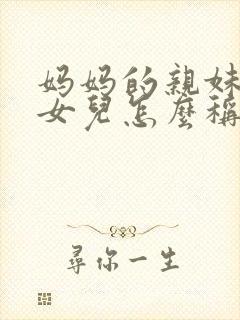 妈妈的親妹
女兒怎麼稱
尋你一生